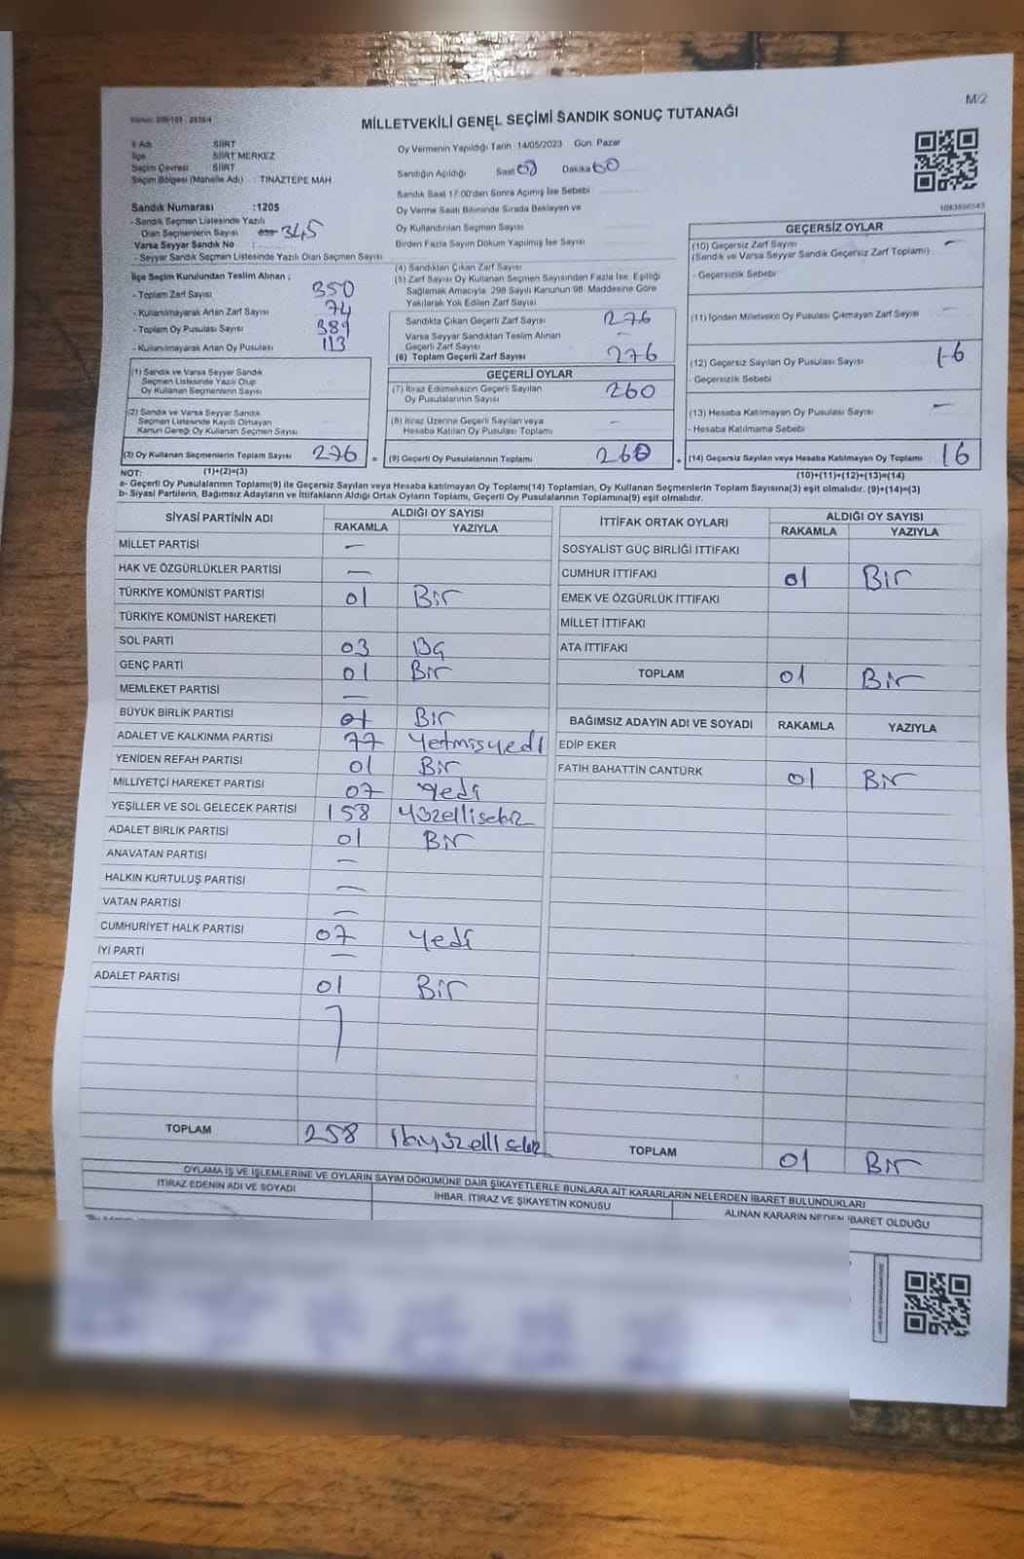 M/2
MİLLETVEKİLİ GENEL SEÇİMİ SANDIK SONUÇ TUTANAĞI
İl Adı SİİRT
İlçe SİİRT MERKEZ
Seçim Çevresi SİİRT
Seçim Bölgesi (Mahalle Adı) : TINAZTEPE MAH
Oy Vermenin Yapıldığı Tarih 14/05/2023 Gün Pazar
Sandığın Açıldığı Saat Dakika
Sandık Saat 17:00'den Sonra Açılmış İse Sebebi
Oy Verme Saati Bitiminde Sırada Bekleyen ve
Oy Kullandırılan Seçmen Sayısı
Birden Fazla Sayım Döküm Yapılmış İse Sayısı
Sandık Numarası :1205
- Sandık Seçmen Listesinde Yazılı
Olan Seçmenlerin Sayısı 345
Varsa Seyyar Sandık No
- Seyyar Sandık Seçmen Listesinde Yazılı Olan Seçmen Sayısı
İlçe Seçim Kurulundan Teslim Alınan ;
- Toplam Zarf Sayısı 350
- Kullanılmayarak Artan Zarf Sayısı 74
- Toplam Oy Pusulası Sayısı 389
- Kullanılmayarak Artan Oy Pusulası 113
(1) Sandık ve Varsa Seyyar Sandık
Seçmen Listesinde Yazılı Olup
Oy Kullanan Seçmenlerin Sayısı
(2) Sandık ve Varsa Seyyar Sandık
Seçmen Listesinde Kayıtlı Olmayan
Kanun Gereği Oy Kullanan Seçmen Sayısı
(3) Oy Kullanan Seçmenlerin Toplam Sayısı 276 =
(4) Sandıktan Çıkan Zarf Sayısı
(5) Zarf Sayısı Oy Kullanan Seçmen Sayısından Fazla İse, Eşitliği
Sağlamak Amacıyla; 298 Sayılı Kanunun 98. Maddesine Göre
Yakılarak Yok Edilen Zarf Sayısı
Sandıkta Çıkan Geçerli Zarf Sayısı 276
Varsa Seyyar Sandıktan Teslim Alınan
Geçerli Zarf Sayısı –
(6) Toplam Geçerli Zarf Sayısı 276
GEÇERLİ OYLAR
(7) İtiraz Edilmeksizin Geçerli Sayılan
Oy Pusulalarının Sayısı 260
(8) İtiraz Üzerine Geçerli Sayılan veya
Hesaba Katılan Oy Pusulası Toplamı –
(9) Geçerli Oy Pusulalarının Toplamı 260 +
GEÇERSİZ OYLAR
(10) Geçersiz Zarf Sayısı –
(Sandık ve Varsa Seyyar Sandık Geçersiz Zarf Toplamı)
- Geçersizlik Sebebi
(11) İçinden Milletvekili Oy Pusulası Çıkmayan Zarf Sayısı –
(12) Geçersiz Sayılan Oy Pusulası Sayısı 16
- Geçersizlik Sebebi
(13) Hesaba Katılmayan Oy Pusulası Sayısı –
- Hesaba Katılmama Sebebi
(14) Geçersiz Sayılan veya Hesaba Katılmayan Oy Toplamı 16
NOT: (1)+(2)=(3) (10)+(11)+(12)+(13)=(14)
a- Geçerli Oy Pusulalarının Toplamı(9) ile Geçersiz Sayılan veya Hesaba katılmayan Oy Toplamı(14) Toplamları, Oy Kullanan Seçmenlerin Toplam Sayısına(3) eşit olmalıdır. (9)+(14)=(3)
b- Siyasi Partilerin, Bağımsız Adayların ve İttifakların Aldığı Ortak Oyların Toplamı, Geçerli Oy Pusulalarının Toplamına(9) eşit olmalıdır.
SİYASİ PARTİNİN ADI ALDIĞI OY SAYISI
RAKAMLA YAZIYLA
MİLLET PARTİSİ –
HAK VE ÖZGÜRLÜKLER PARTİSİ –
TÜRKİYE KOMÜNİST PARTİSİ 01 Bir
TÜRKİYE KOMÜNİST HAREKETİ
SOL PARTİ 03
GENÇ PARTİ 01 Bir
MEMLEKET PARTİSİ –
BÜYÜK BİRLİK PARTİSİ 01 Bir
ADALET VE KALKINMA PARTİSİ 77 Yetmişyedi
YENİDEN REFAH PARTİSİ 01 Bir
MİLLİYETÇİ HAREKET PARTİSİ 07 Yedi
YEŞİLLER VE SOL GELECEK PARTİSİ 158 Yüzellisekiz
ADALET BİRLİK PARTİSİ 01 Bir
ANAVATAN PARTİSİ –
HALKIN KURTULUŞ PARTİSİ –
VATAN PARTİSİ –
CUMHURİYET HALK PARTİSİ 07 Yedi
İYİ PARTİ –
ADALET PARTİSİ 01 Bir
TOPLAM 258 ikiyüzellisekiz
İTTİFAK ORTAK OYLARI ALDIĞI OY SAYISI
RAKAMLA YAZIYLA
SOSYALİST GÜÇ BİRLİĞİ İTTİFAKI
CUMHUR İTTİFAKI 01 Bir
EMEK VE ÖZGÜRLÜK İTTİFAKI
MİLLET İTTİFAKI
ATA İTTİFAKI
TOPLAM 01 Bir
BAĞIMSIZ ADAYIN ADI VE SOYADI RAKAMLA YAZIYLA
EDİP EKER
FATİH BAHATTİN CANTÜRK 01 Bir
TOPLAM 01 Bir
OYLAMA İŞ VE İŞLEMLERİNE VE OYLARIN SAYIM DÖKÜMÜNE DAİR ŞİKAYETLERLE BUNLARA AİT KARARLARIN NELERDEN İBARET BULUNDUKLARI
İTİRAZ EDENİN ADI VE SOYADI İHBAR, İTİRAZ VE ŞİKAYETİN KONUSU ALINAN KARARIN NEDEN İBARET OLDUĞU